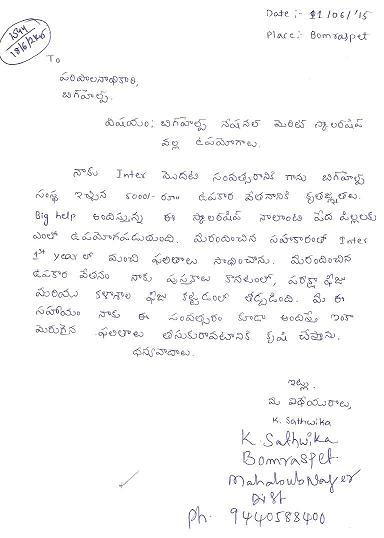 Date :- 11/06/'15
Place:- Bomraspet
2544
18/6/2015
To
పరిపాలనాధికారి,
బిగ్‌హెల్ప్.
విషయం: బిగ్‌హెల్ప్ నేషనల్ మెరిట్ స్కాలర్‌షిప్
వల్ల ఉపయోగాలు.
నాకు Inter మొదటి సంవత్సరానికి గాను బిగ్‌హెల్ప్
సంస్థ ఇచ్చిన 5000/-రూ॥ ఉపకార వేతనానికి కృతజ్ఞతలు.
Big help అందిస్తున్న ఈ స్కాలర్‌షిప్ నాలాంటి పేద పిల్లలకు
ఎంతో ఉపయోగపడుతుంది. మీరందించిన సహకారంతో Inter
1st year లో మంచి ఫలితాలు సాధించాను. మీరందించిన
ఉపకార వేతనం నాకు పుస్తకాలు కొనటంలో, పరీక్షా ఫీజు
మరియు కళాశాల ఫీజు కట్టడంలో తోడ్పడింది. మీ ఈ
సహాయం నాకు ఈ సంవత్సరం కూడా అందిస్తే ఇంకా
మెరుగైన ఫలితాలు తీసుకురావటానికి కృషి చేస్తాను.
ధన్యవాదాలు.
ఇట్లు
మీ విధేయురాలు,
K. Sathwika
K. Sathwika
Bomraspet
MahaboubNager
Dist
Ph. 9440588400